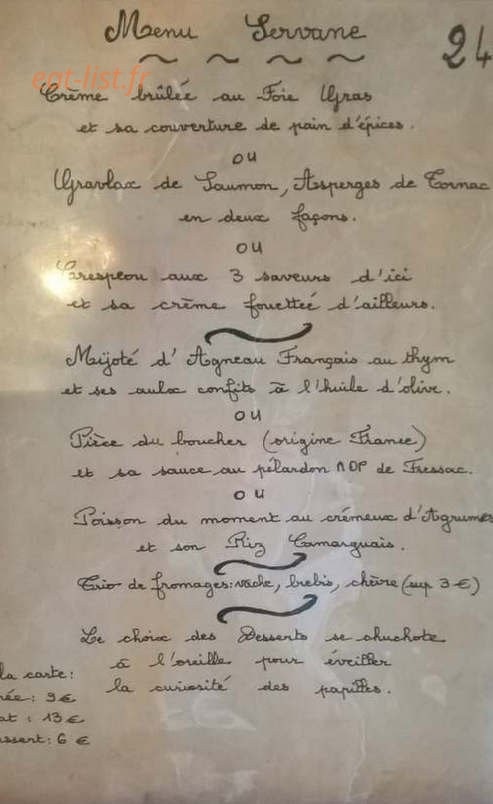 Menu Servane 24
eat-list.fr
Crème brûlée au Foie Gras
et sa couverture de pain d'épices.
ou
Gravlax de Saumon, Asperges de Tornac
en deux façons.
ou
Crespeou aux 3 saveurs d'ici
et sa crème fouettée d'ailleurs.
Mijoté d'Agneau Français au thym
et ses aulx confits à l'huile d'olive.
ou
Pièce du boucher (origine France)
et sa sauce au pélardon AOP de Fressac.
ou
Poisson du moment au crémeux d'Agrumes
et son Riz Camarguais.
Trio de fromages: vache, brebis, chèvre (sup 3€)
Le choix des Desserts se chuchote
à l'oreille pour éveiller
la curiosité des papilles.
la carte:
rée: 9€
at: 13€
ssert: 6€